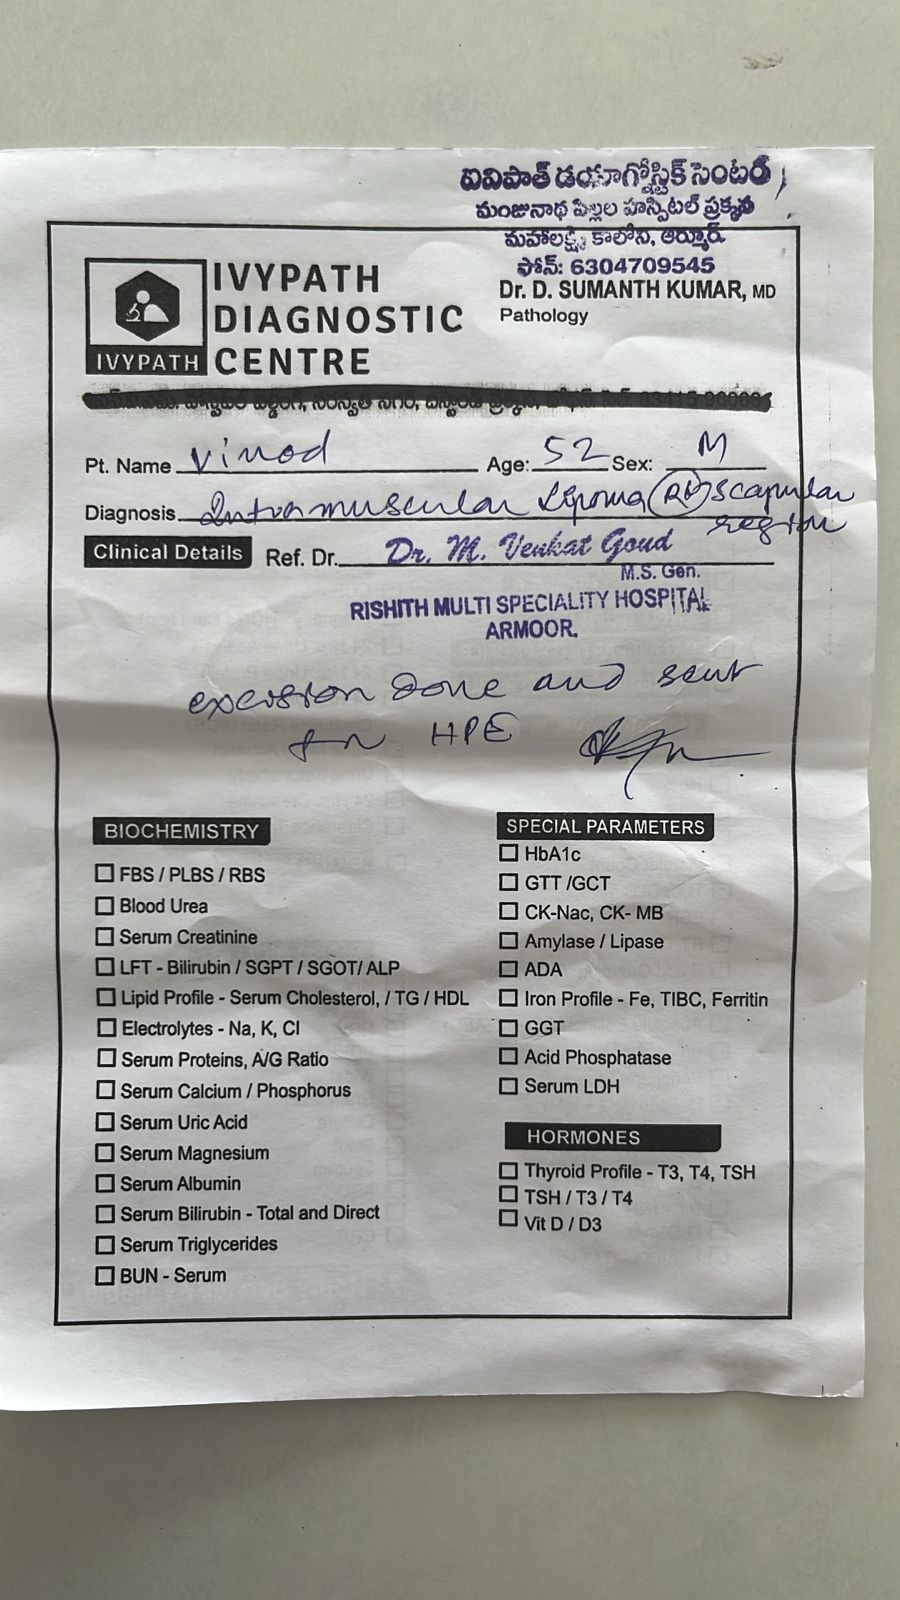 ఐవిపాత్ డయాగ్నోస్టిక్ సెంటర్
మంజునాథ పిల్లల హస్పిటల్ ప్రక్కన
మహాలక్ష్మి కాలోని, ఆర్మూర్.
ఫోన్: 6304709545
IVYPATH
DIAGNOSTIC
CENTRE
IVYPATH
Dr. D. SUMANTH KUMAR, MD
Pathology
Pt. Name Vinod Age: 52 Sex: M
Diagnosis Intramuscular Lipoma (Rt) scapular
region
Clinical Details Ref. Dr. Dr. M. Venkat Goud
M.S. Gen.
RISHITH MULTI SPECIALITY HOSPITAL
ARMOOR.
excision done and sent
for HPE
BIOCHEMISTRY
FBS / PLBS / RBS
Blood Urea
Serum Creatinine
LFT - Bilirubin / SGPT / SGOT/ ALP
Lipid Profile - Serum Cholesterol, / TG / HDL
Electrolytes - Na, K, Cl
Serum Proteins, A/G Ratio
Serum Calcium / Phosphorus
Serum Uric Acid
Serum Magnesium
Serum Albumin
Serum Bilirubin - Total and Direct
Serum Triglycerides
BUN - Serum
SPECIAL PARAMETERS
HbA1c
GTT /GCT
CK-Nac, CK- MB
Amylase / Lipase
ADA
Iron Profile - Fe, TIBC, Ferritin
GGT
Acid Phosphatase
Serum LDH
HORMONES
Thyroid Profile - T3, T4, TSH
TSH / T3 / T4
Vit D / D3